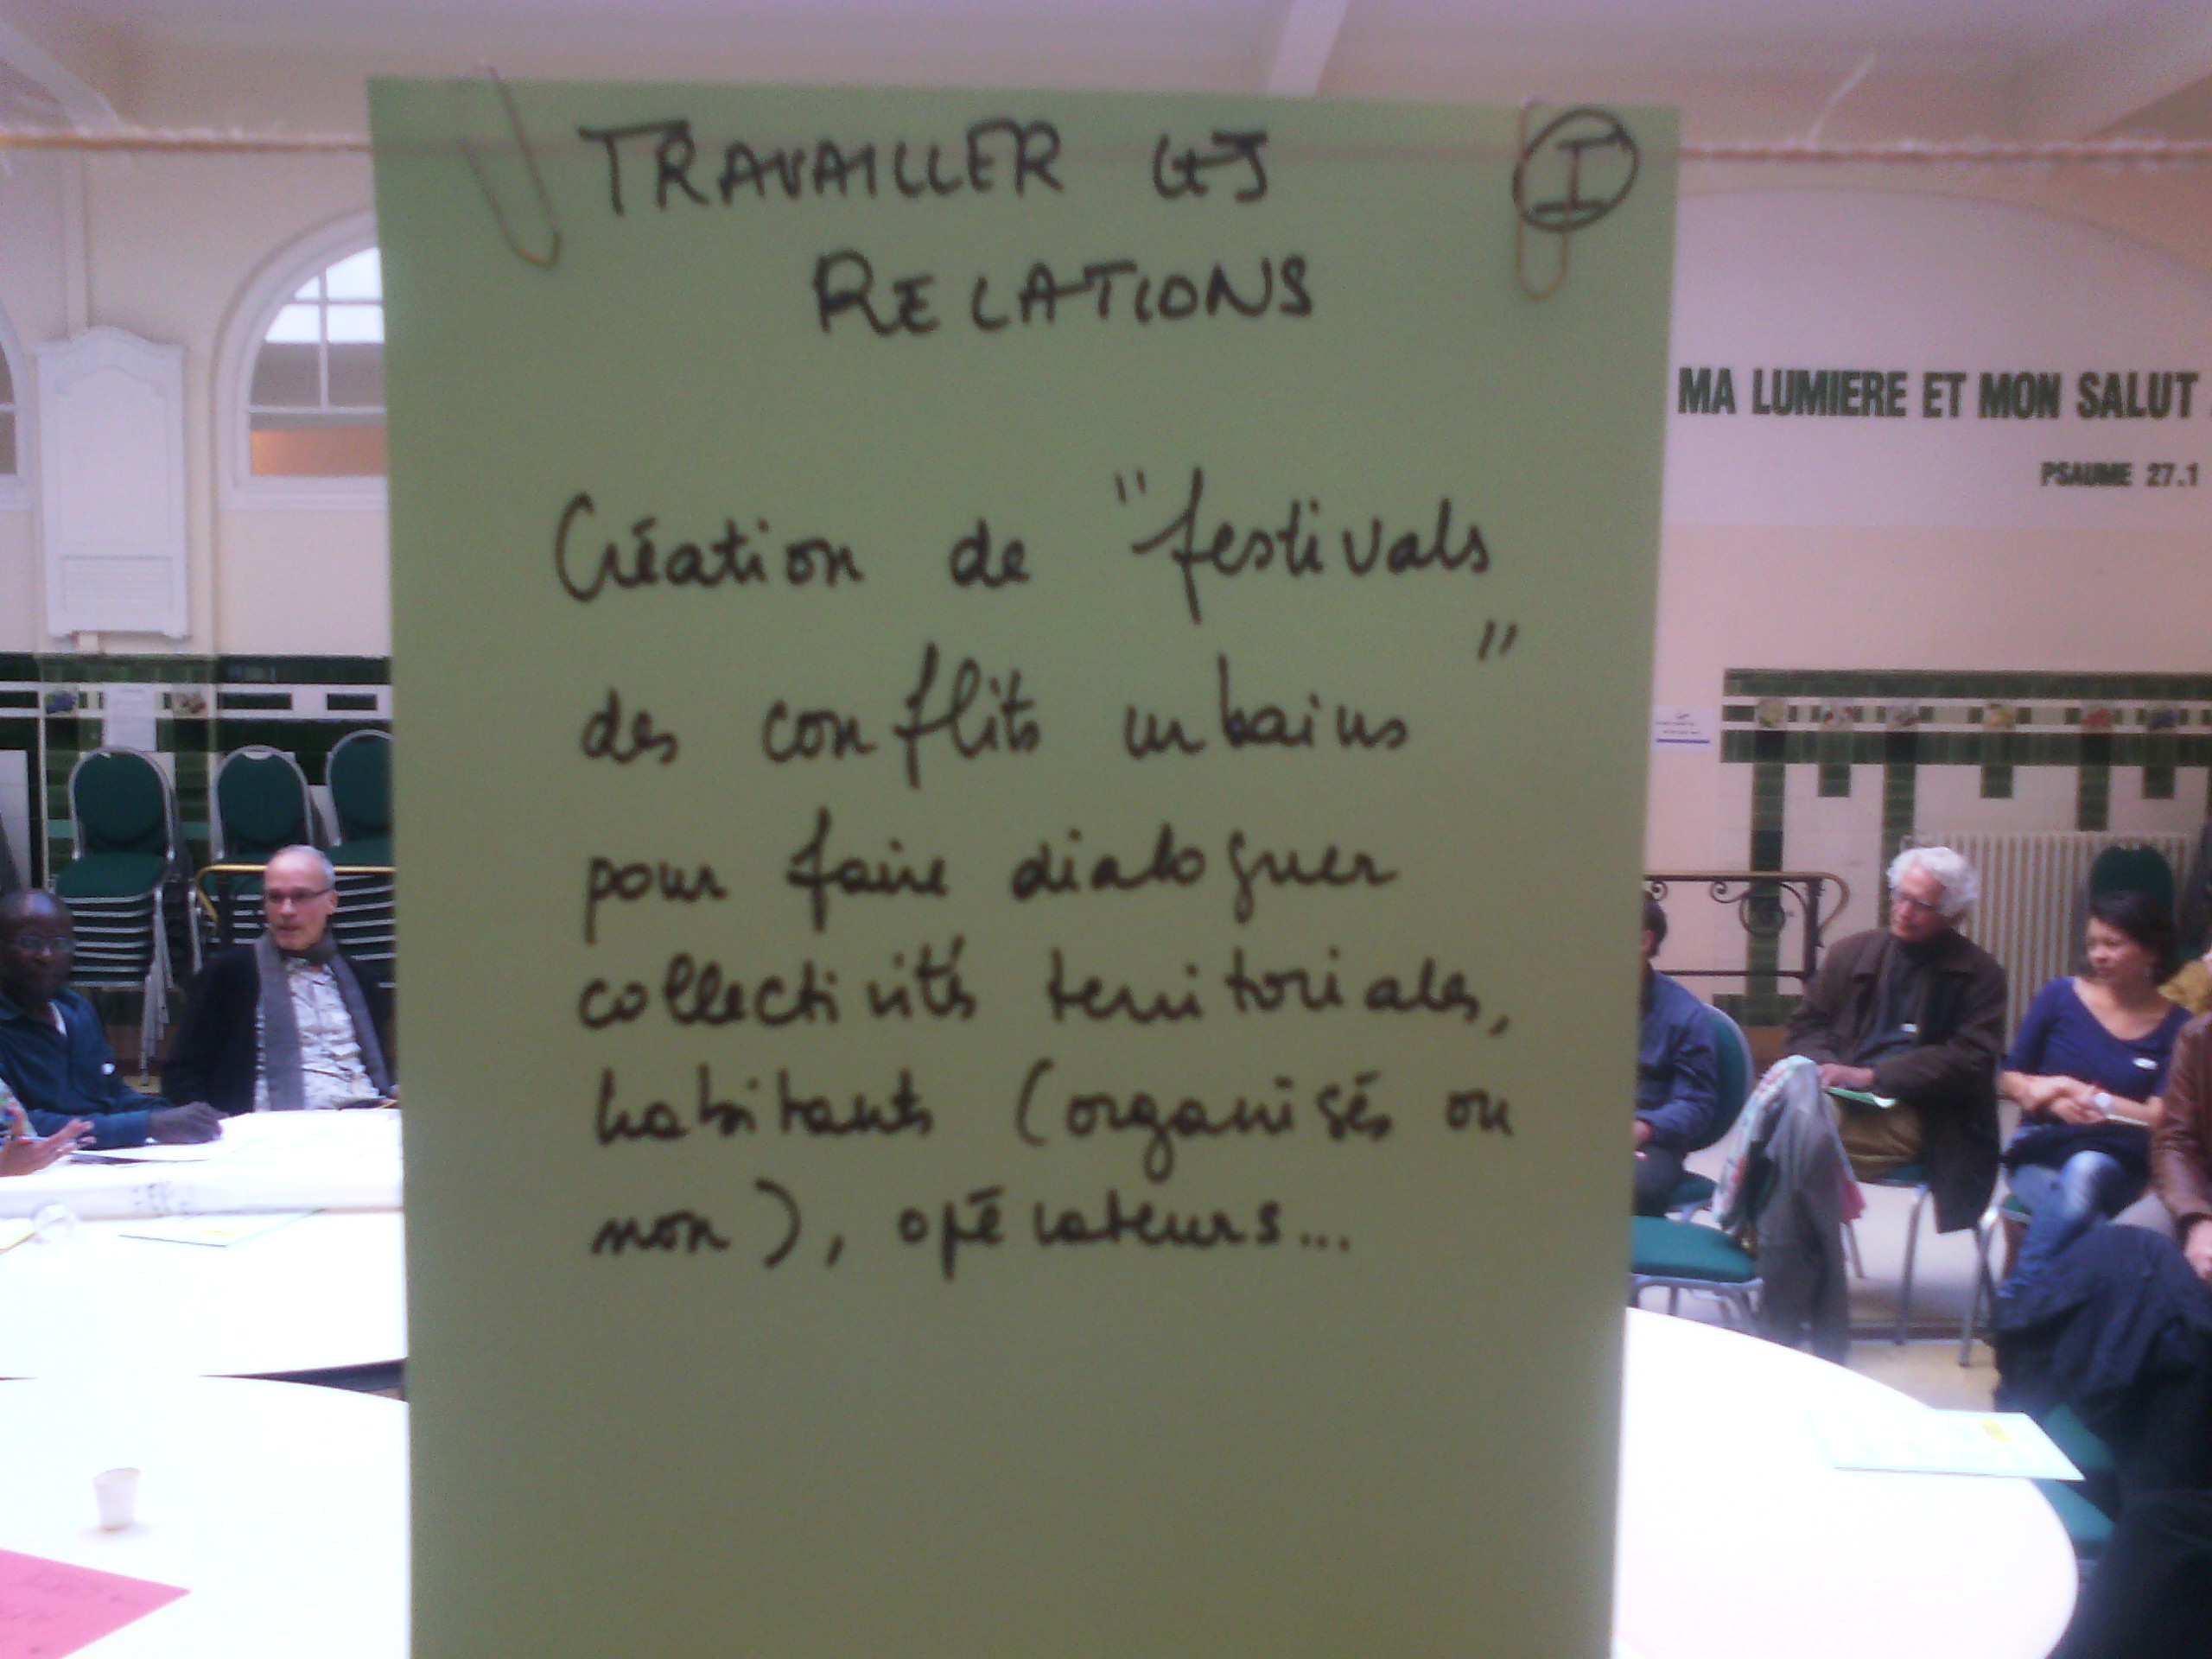 TRAVAILLER LES
RELATIONS
I
Création de "festivals
des conflits urbains"
pour faire dialoguer
collectivités territoriales,
habitants (organisés ou
non), opérateurs...
MA LUMIERE ET MON SALUT
PSAUME 27.1